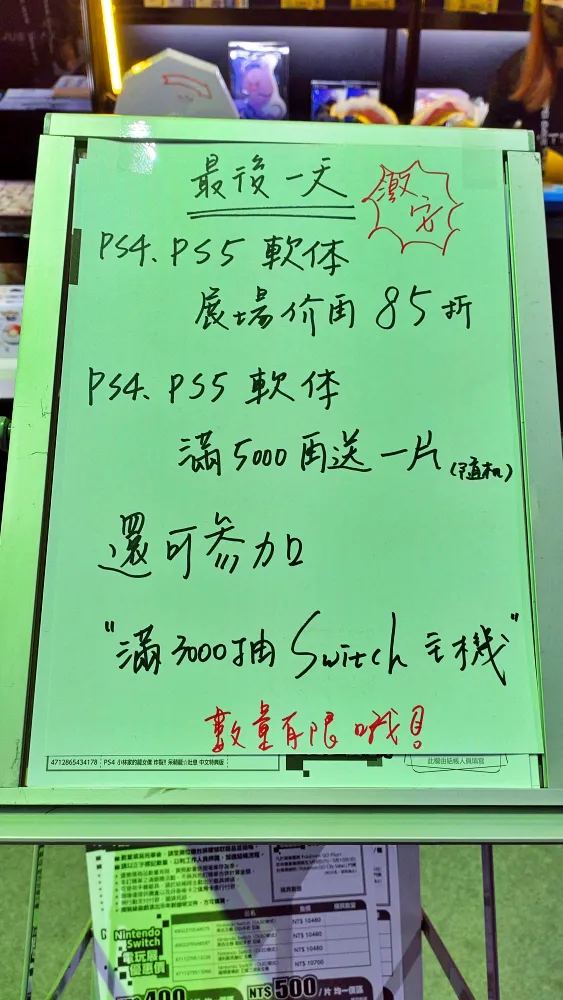 最後一天
激安
PS4、PS5 軟体
展場价再 85折
PS4、PS5 軟体
滿 5000 再送 一片 (隨机)
還可參加
"滿 3000 抽 Switch 主機"
數量有限哦!
4712865434178 PS4 小林家的龍女僕 炸裂!! 呆萌龍☆吐息 中文特典版
此欄由結帳人員填寫
品名
售價
購買數量
NT$ 10480
NT$ 10480
NT$ 10480
NT$ 10700
Nintendo
Switch
電玩展
優惠價
NT$ 500 /片 均一價區